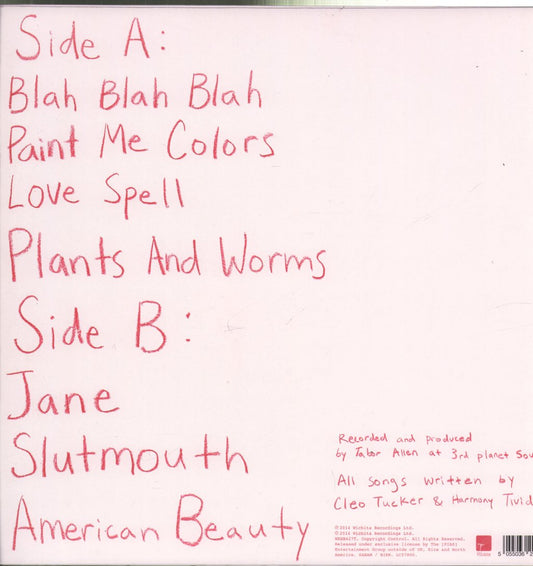 Side A:
Blah Blah Blah
Paint Me Colors
Love Spell
Plants And Worms
Side B:
Jane
Slutmouth
American Beauty
Recorded and produced
by Tabor Allen at 3rd planet Sou
All songs written by
Cleo Tucker & Harmony Tivid
℗2016 Wichita Recordings Ltd.
©2016 Wichita Recordings Ltd.
Copyright Control. All Rights Reserved.
Released under exclusive license by The
Entertainment Group outside of UK, Eire and North
America.
5 055036 2